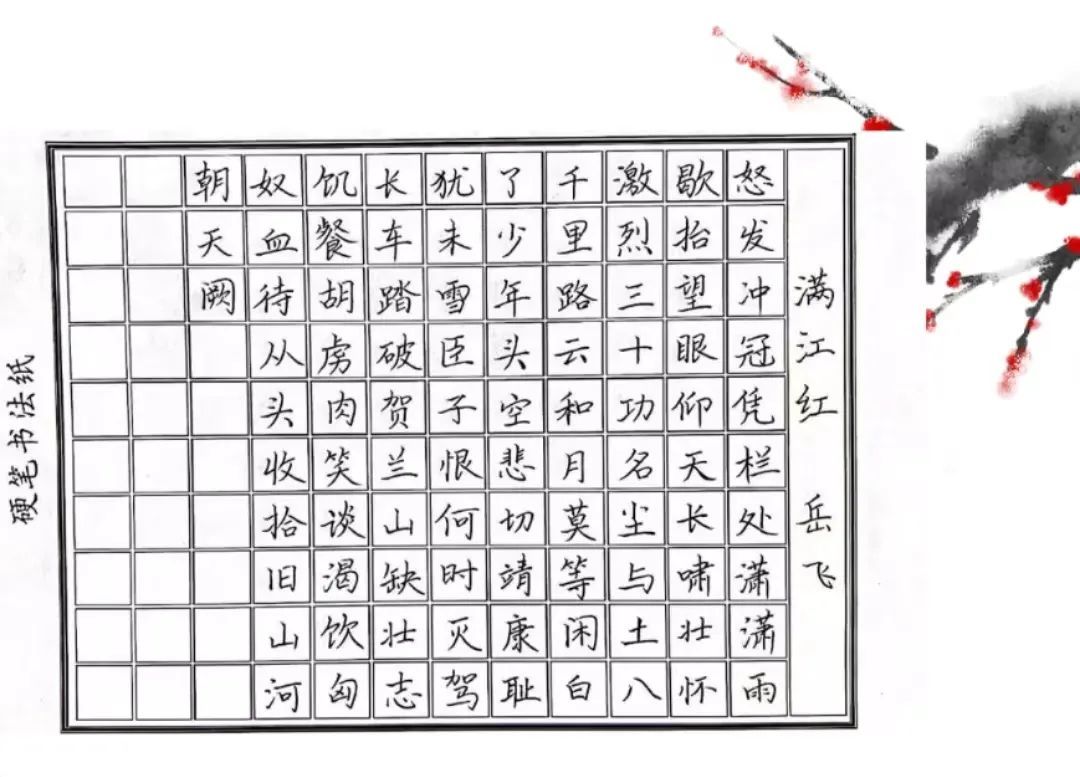 满江红 岳飞
怒发冲冠凭栏处潇潇雨
歇抬望眼仰天长啸壮怀
激烈三十功名尘与土八
千里路云和月莫等闲白
了少年头空悲切靖康耻
犹未雪臣子恨何时灭驾
长车踏破贺兰山缺壮志
饥餐胡虏肉笑谈渴饮匈
奴血待从头收拾旧山河
朝天阙
硬笔书法纸